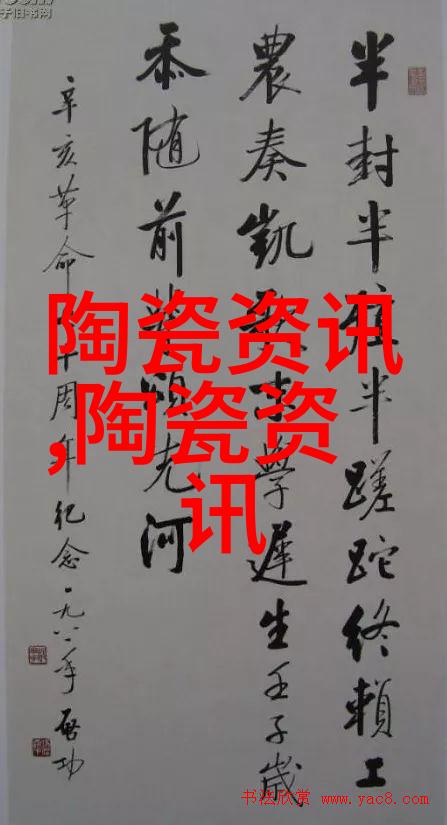 半封半殖半蹉跎终賴工
農奏凱歌末學遲生壬子歲
忝随前輩頌先河
辛亥革命七十周年纪念一九八一年启功
陶瓷资讯
,陶瓷资
讯
书法欣赏 www.yac8.com